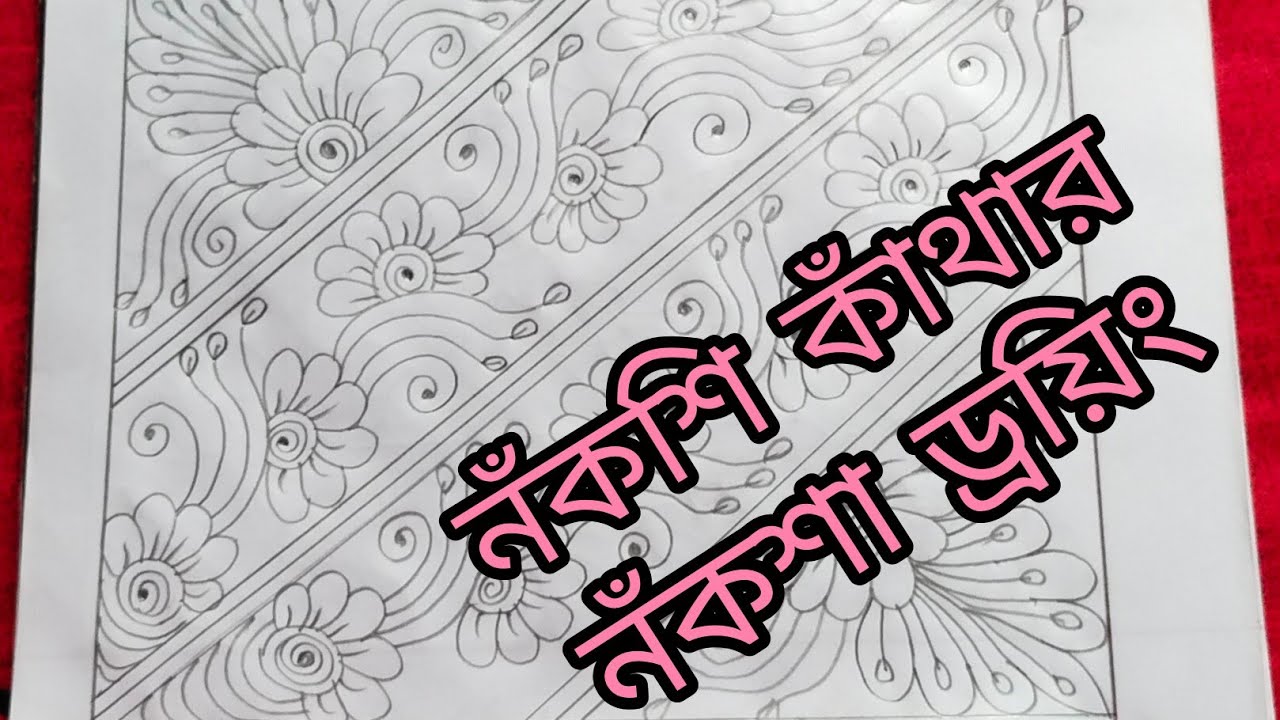 নঁকশি কাঁথার
নঁকশা ড্রয়িং